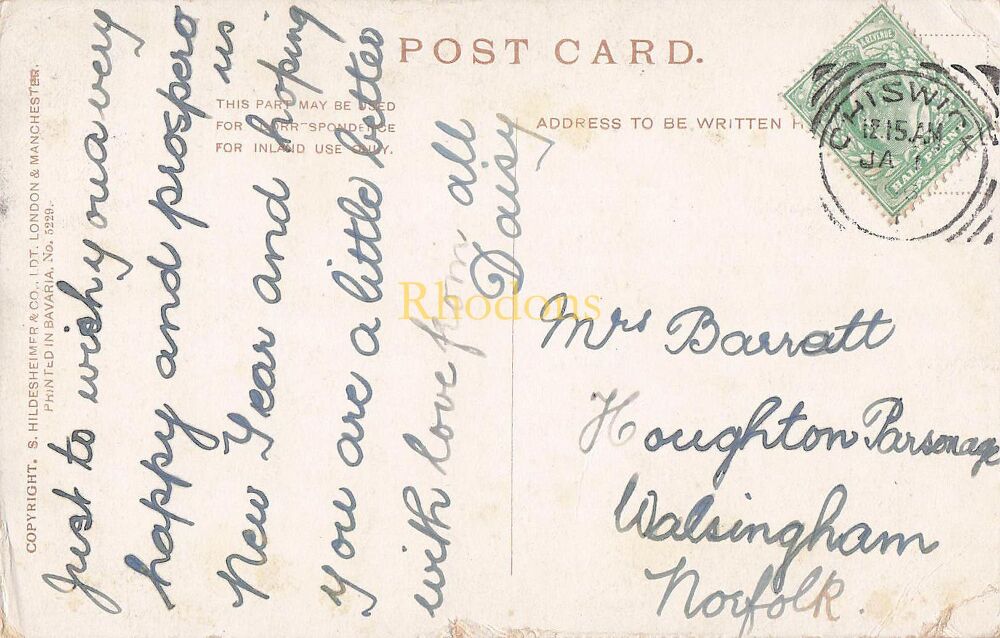 POST CARD.
THIS PART MAY BE USED
FOR CORRESPONDENCE
FOR INLAND USE ONLY.
ADDRESS TO BE WRITTEN H
COPYRIGHT. S. HILDESHEIMER & CO., LDT. LONDON & MANCHESTER.
PRINTED IN BAVARIA. No. 5229.
Just to wish you a very
happy and prospero
us
New Year and hoping
you are a little better
with love from all
Daisy
Mrs Barratt
Houghton Parsonage
Walsingham
Norfolk.
CHISWICK
12.15.AM
JA 1
& REVENUE
HALF PENNY
Rhodons